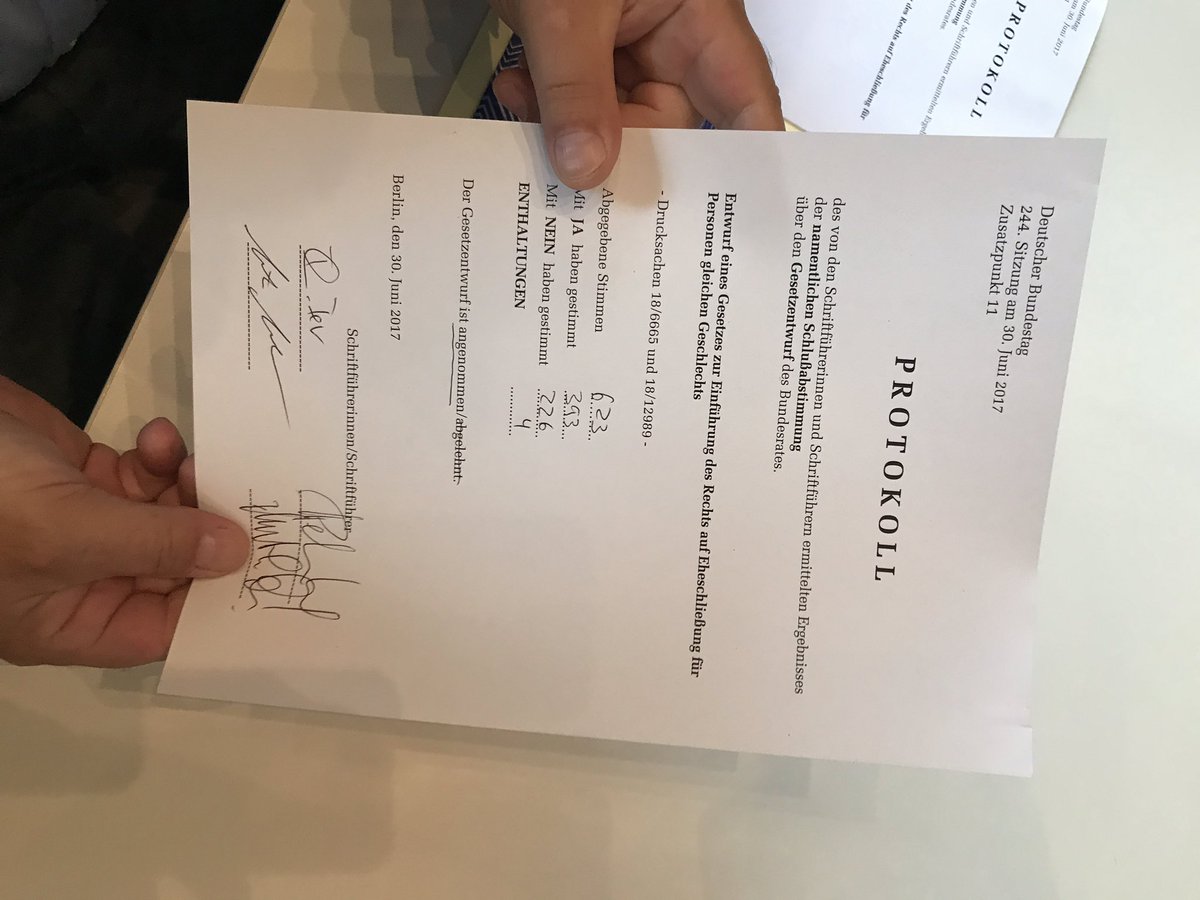 Deutscher Bundestag
244. Sitzung am 30. Juni 2017
Zusatzpunkt 11
PROTOKOLL
des von den Schriftführerinnen und Schriftführern ermittelten Ergebnisses
der namentlichen Schlußabstimmung
über den Gesetzentwurf des Bundesrates.
Entwurf eines Gesetzes zur Einführung des Rechts auf Eheschließung für
Personen gleichen Geschlechts
- Drucksachen 18/6665 und 18/12989 -
Abgegebene Stimmen 623
Mit JA haben gestimmt 393
Mit NEIN haben gestimmt 226
ENTHALTUNGEN 4
Der Gesetzentwurf ist angenommen/abgelehnt.
Berlin, den 30. Juni 2017
Schriftführerinnen/Schriftführer
30. Juni 2017
PROTOKOLL
und Schriftführern ermittelten
des Rechts auf Eheschließung für